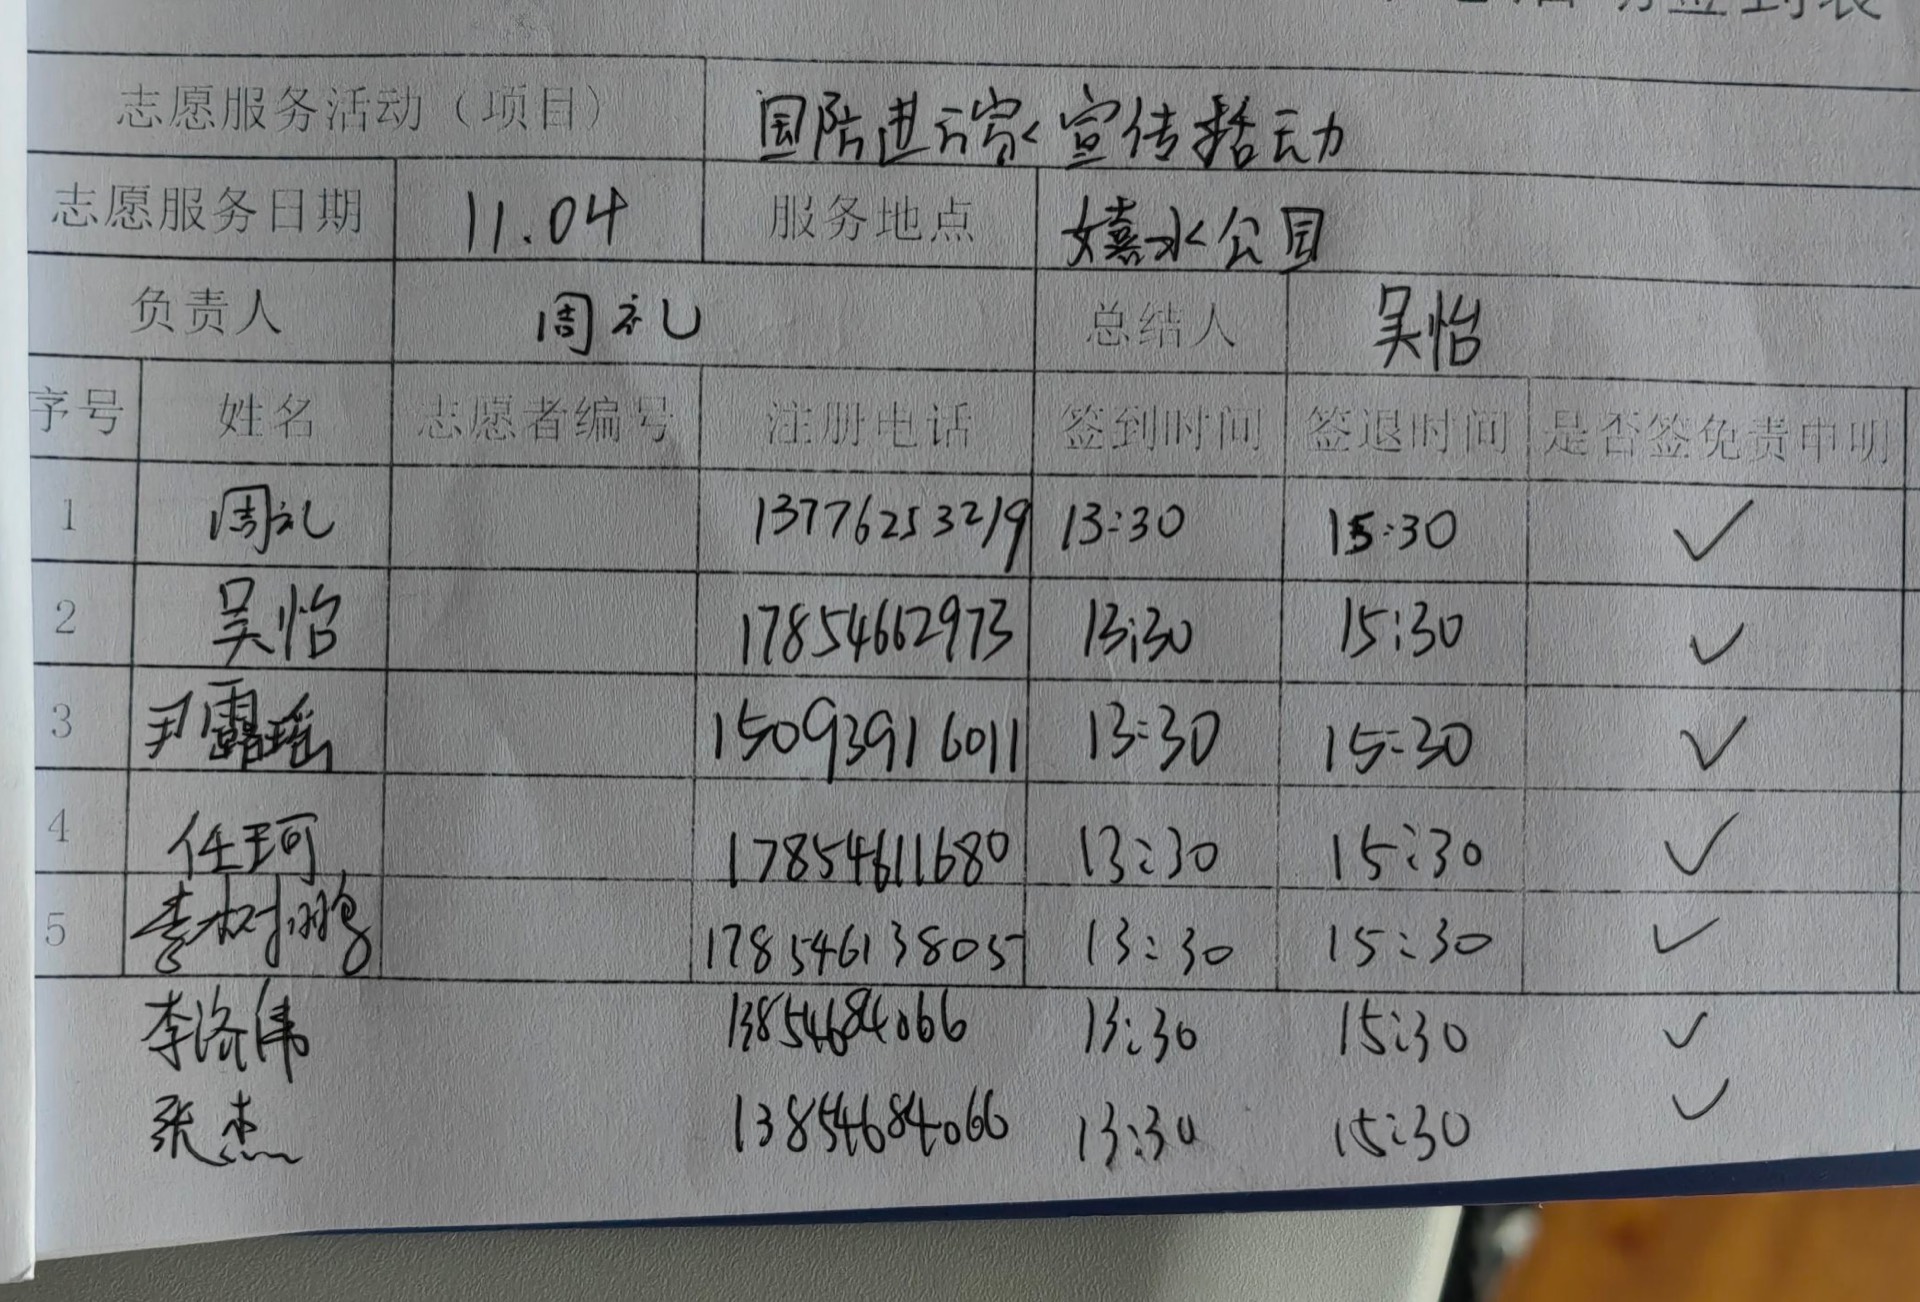 签到表
志愿服务活动（项目） 国防进万家宣传活动
志愿服务日期 11.04 服务地点 嬉水公园
负责人 周礼 总结人 吴怡
序号 姓名 志愿者编号 注册电话 签到时间 签退时间 是否签免责申明
1 周礼 13776253219 13:30 15:30 ✓
2 吴怡 17854662973 13:30 15:30 ✓
3 尹露瑶 15093916011 13:30 15:30 ✓
4 任珂 17854611680 13:30 15:30 ✓
5 李树鹏 17854613805 13:30 15:30 ✓
李洛伟 13854684066 13:30 15:30 ✓
张杰 13854684066 13:30 15:30 ✓